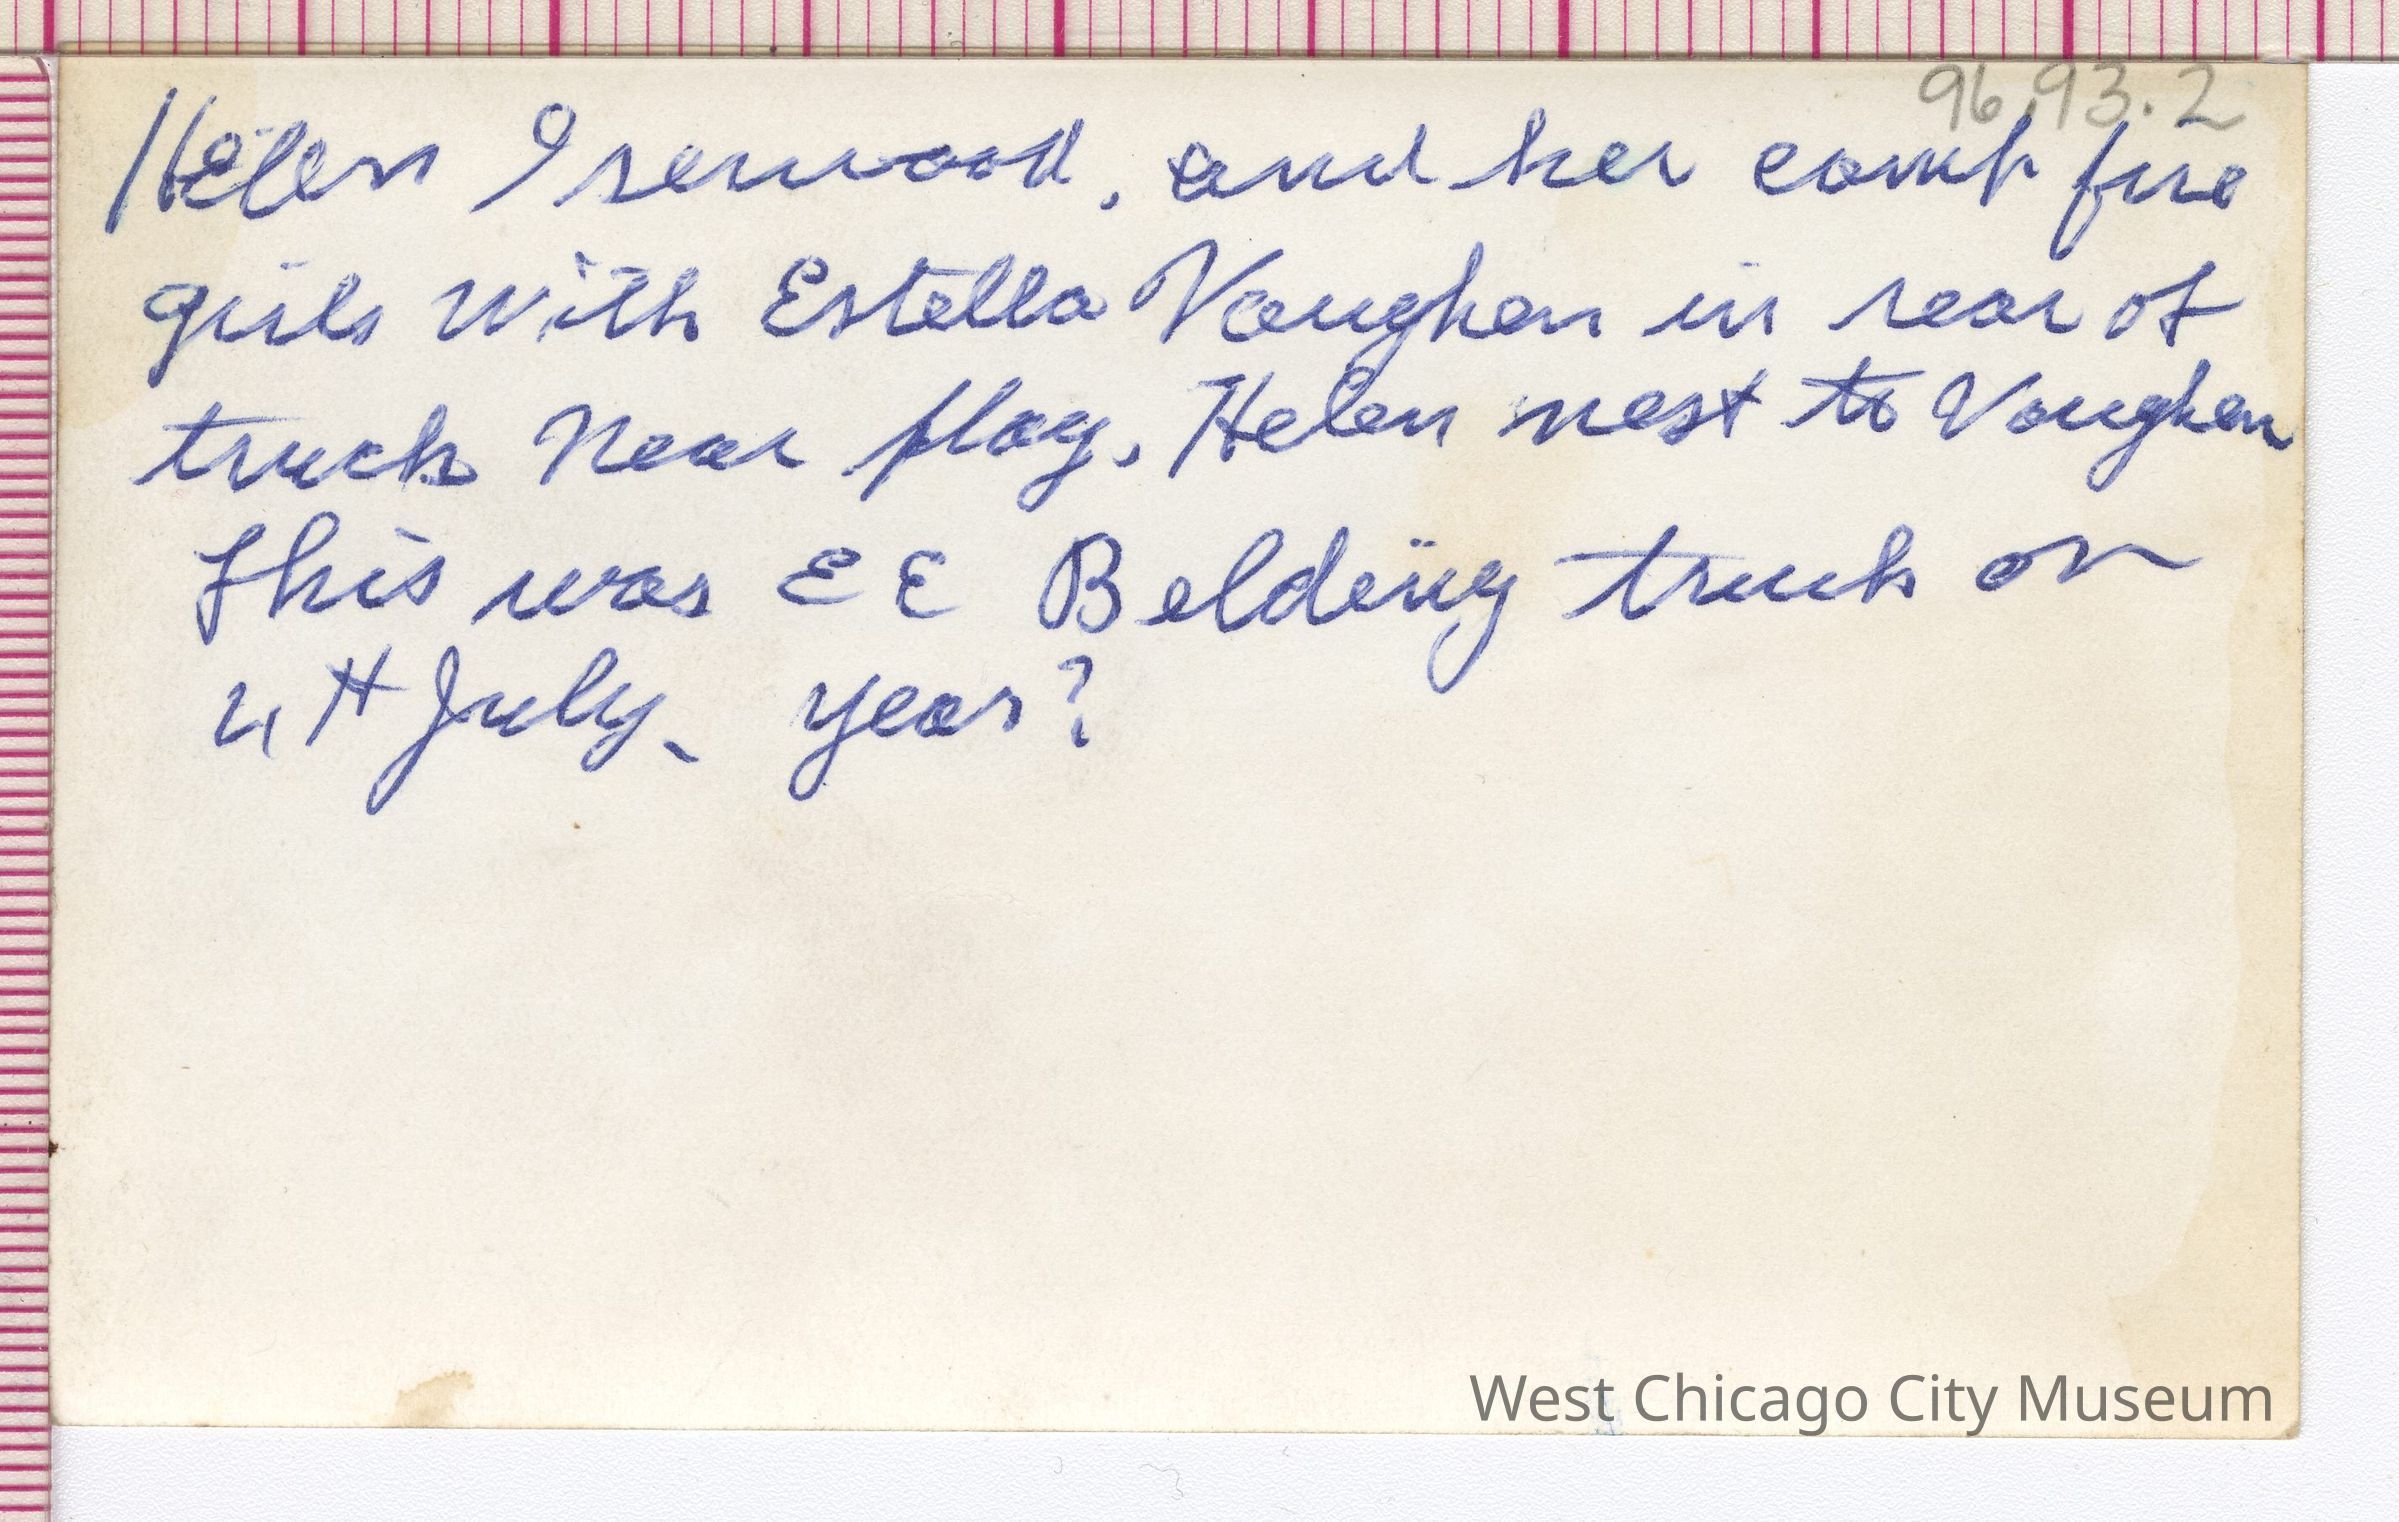 96.93.2
Helen Isenwood, and her camp fire
girls with Estella Vaughan in rear of
truck near flag. Helen next to Vaughan
This was E E Belding truck on
4TH July. year?
West Chicago City Museum